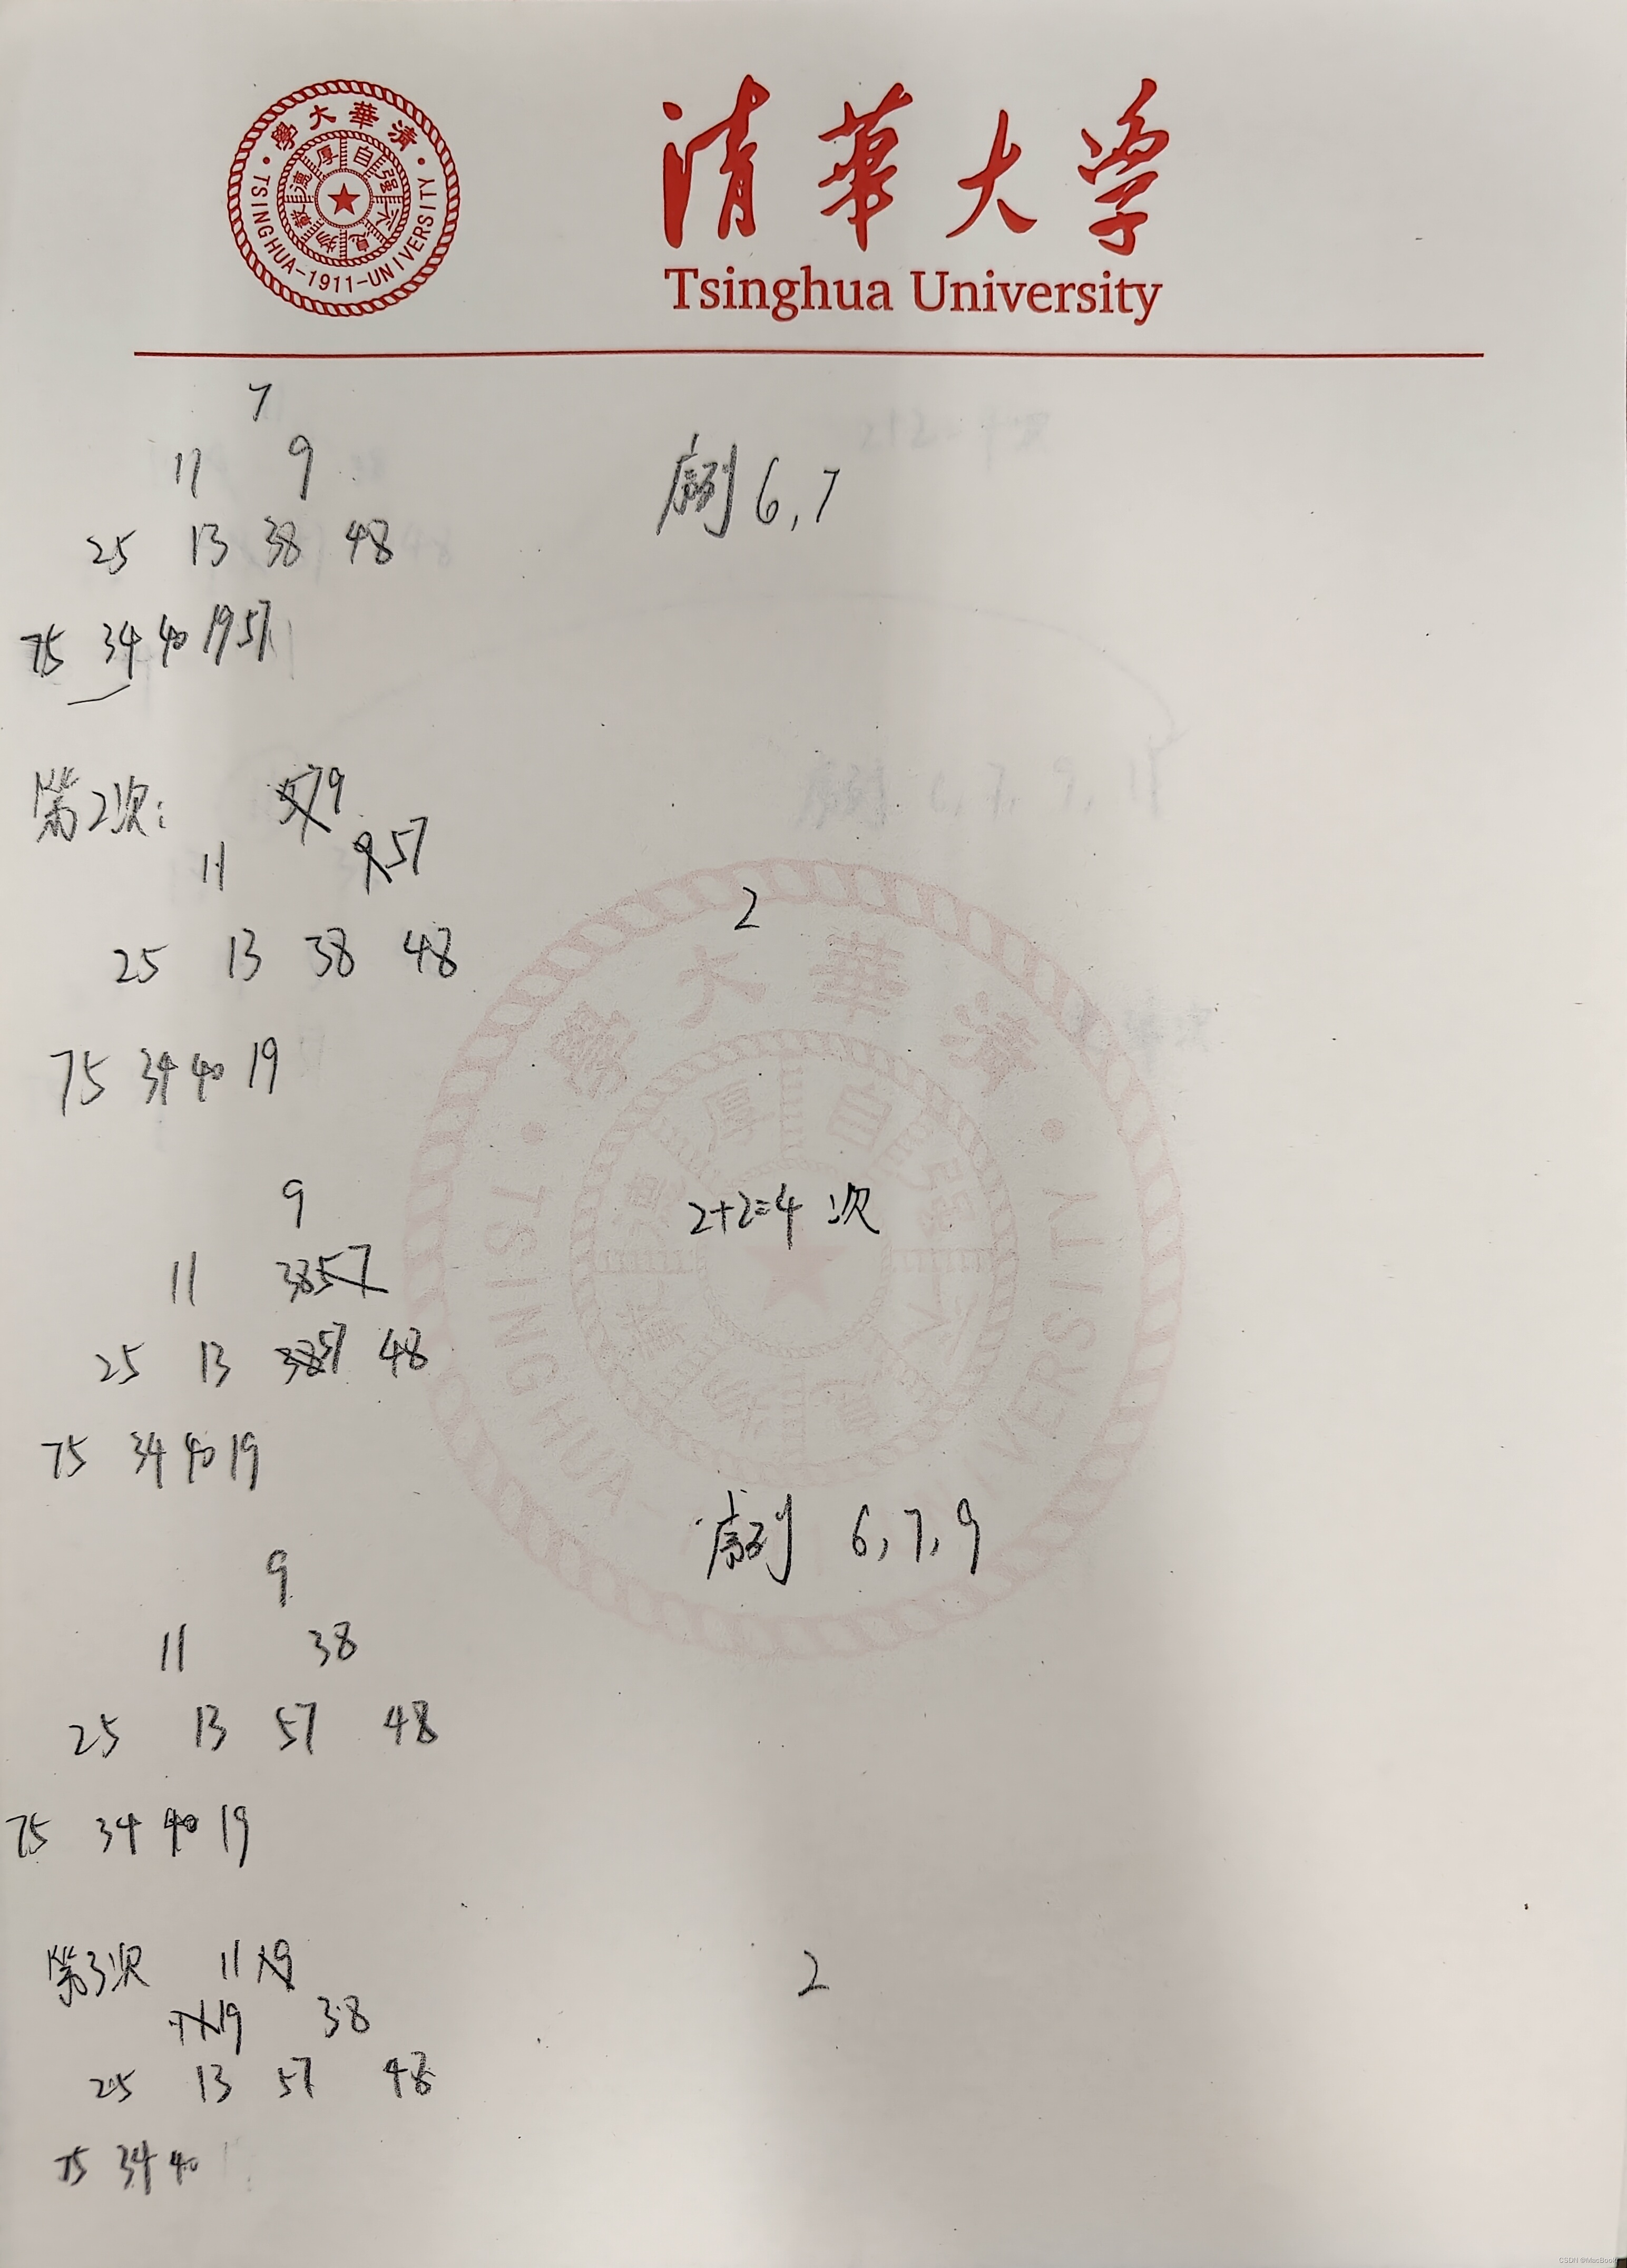 清華大学
Tsinghua University
學大華清
自强不息
厚德載物
TSINGHUA-1911-UNIVERSITY
7
11 9
序列 6,7
25 13 38 48
75 34 40 19 57
第2次: 57 9
11 9 57
2
25 13 38 48
75 34 40 19
9
2+2=4 次
11 38 57
25 13 38 57 48
75 34 40 19
序列 6,7,9
9
11 38
25 13 57 48
75 34 40 19
第3次 11 19
2
11 19 38
25 13 57 48
75 34 40
CSDN @MacBook